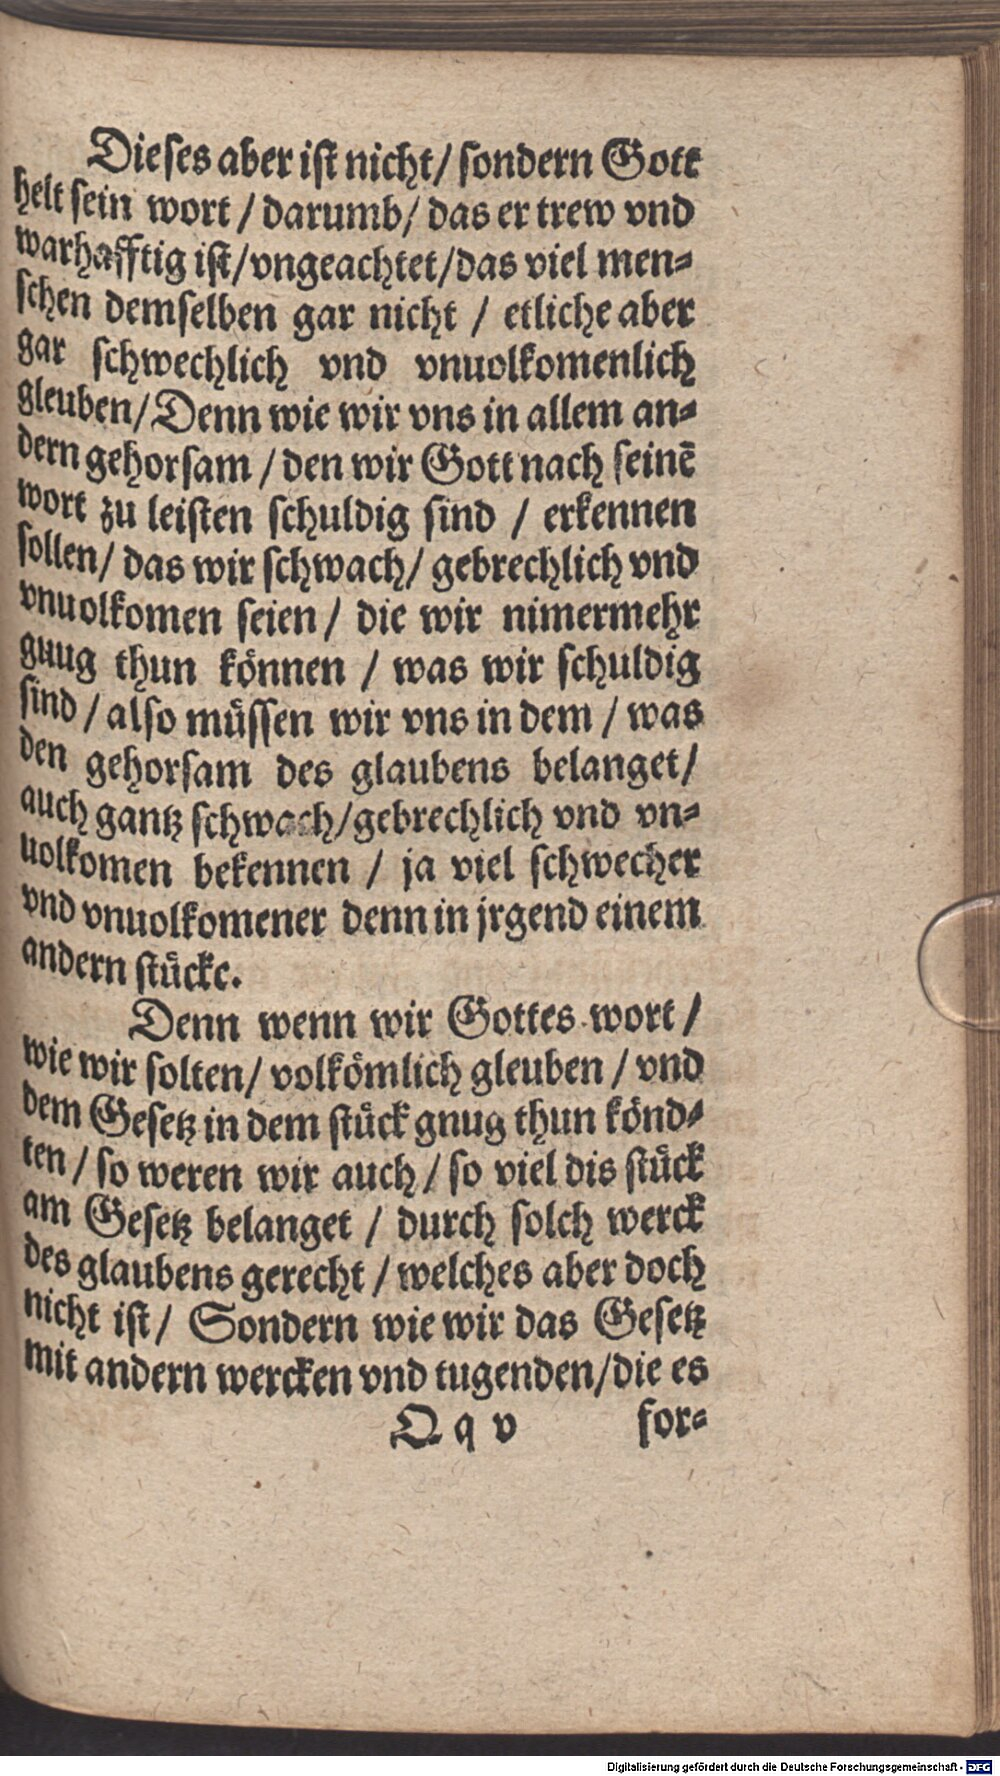 Dieses aber ist nicht / sondern Gott
helt sein wort / darumb / das er trew vnd
warhafftig ist / vngeachtet / das viel men⸗
schen demselben gar nicht / etliche aber
gar schwechlich vnd vnuolkomenlich
gleuben / Denn wie wir vns in allem an⸗
dern gehorsam / den wir Gott nach seinē
wort zu leisten schuldig sind / erkennen
sollen / das wir schwach / gebrechlich vnd
vnuolkomen seien / die wir nimermehr
gnug thun koͤnnen / was wir schuldig
sind / also muͤssen wir vns in dem / was
den gehorsam des glaubens belanget /
auch gantz schwach / gebrechlich vnd vn⸗
uolkomen bekennen / ja viel schwecher
vnd vnuolkomener denn in jrgend einem
andern stuͤcke.
Denn wenn wir Gottes wort /
wie wir solten / volkoͤmlich gleuben / vnd
dem Gesetz in dem stuͤck gnug thun koͤnd⸗
ten / so weren wir auch / so viel dis stuͤck
am Gesetz belanget / durch solch werck
des glaubens gerecht / welches aber doch
nicht ist / Sondern wie wir das Gesetz
mit andern wercken vnd tugenden / die es
Q q v for⸗
Digitalisierung gefördert durch die Deutsche Forschungsgemeinschaft - DFG